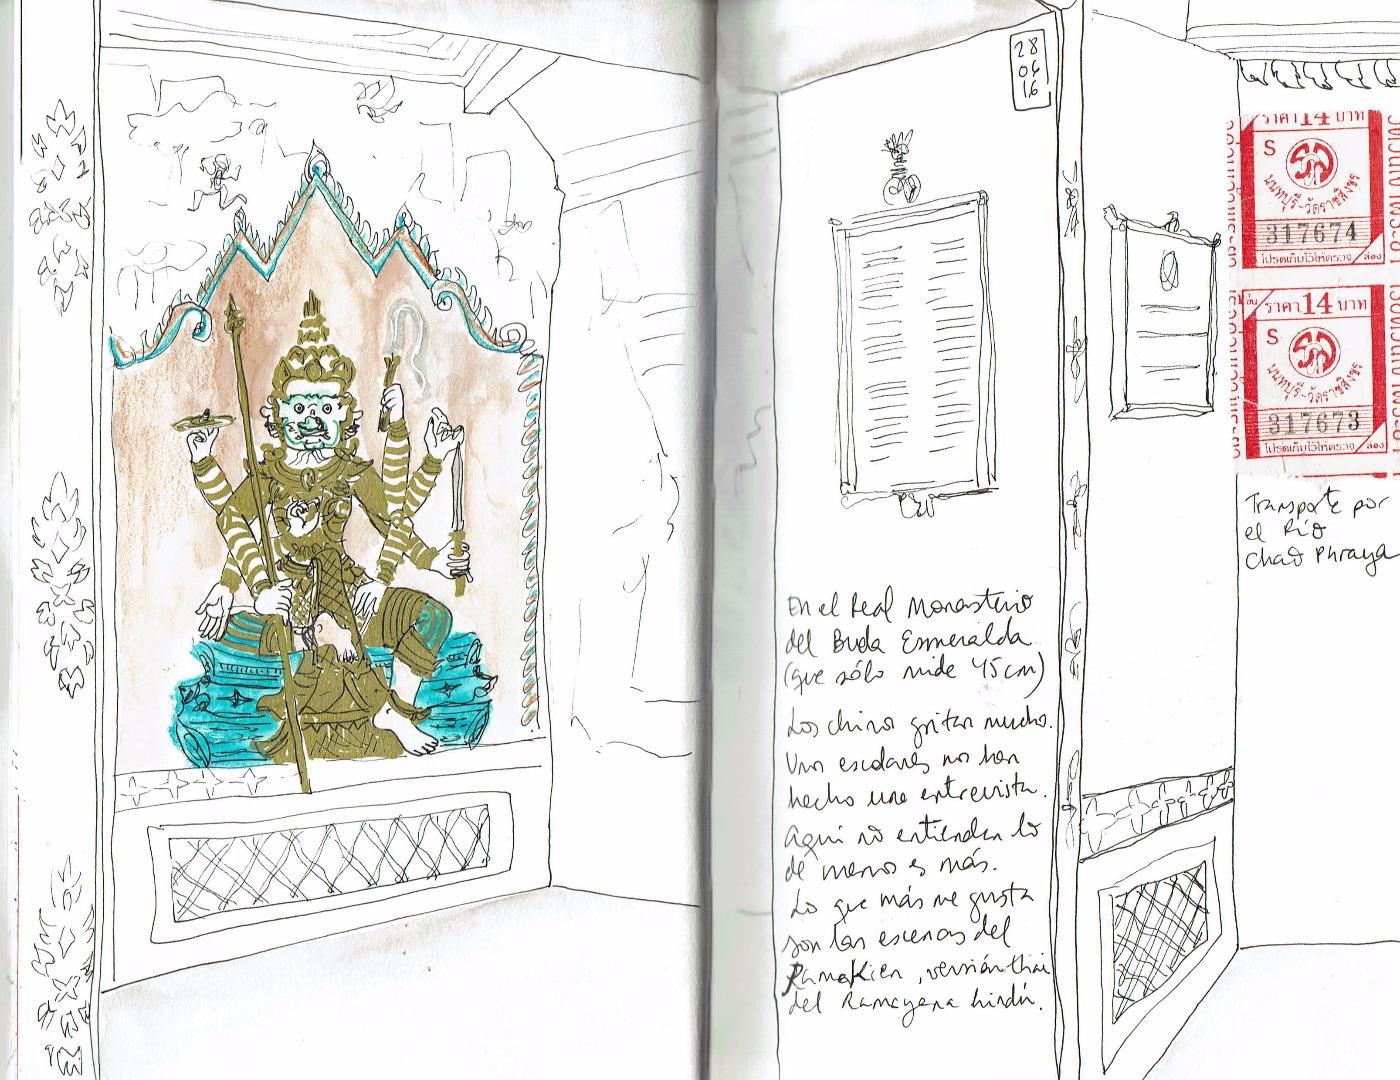 28
06
16
ราคา 14 บาท
S
นนทบุรี-วัดราชสิงขร
317674
โปรดเก็บไว้ให้ตรวจ
ราคา 14 บาท
S
นนทบุรี-วัดราชสิงขร
317673
โปรดเก็บไว้ให้ตรวจ
Transporte por
el Río
Chao Phraya
En el Real Monasterio
del Buda Esmeralda
(que sólo mide 45cm)
Los chinos gritan mucho.
Unos escolares nos han
hecho una entrevista.
Aquí no entienden lo
de menos es más.
Lo que más me gusta
son las escenas del
Ramakien, versión thai
del Ramayana hindú.